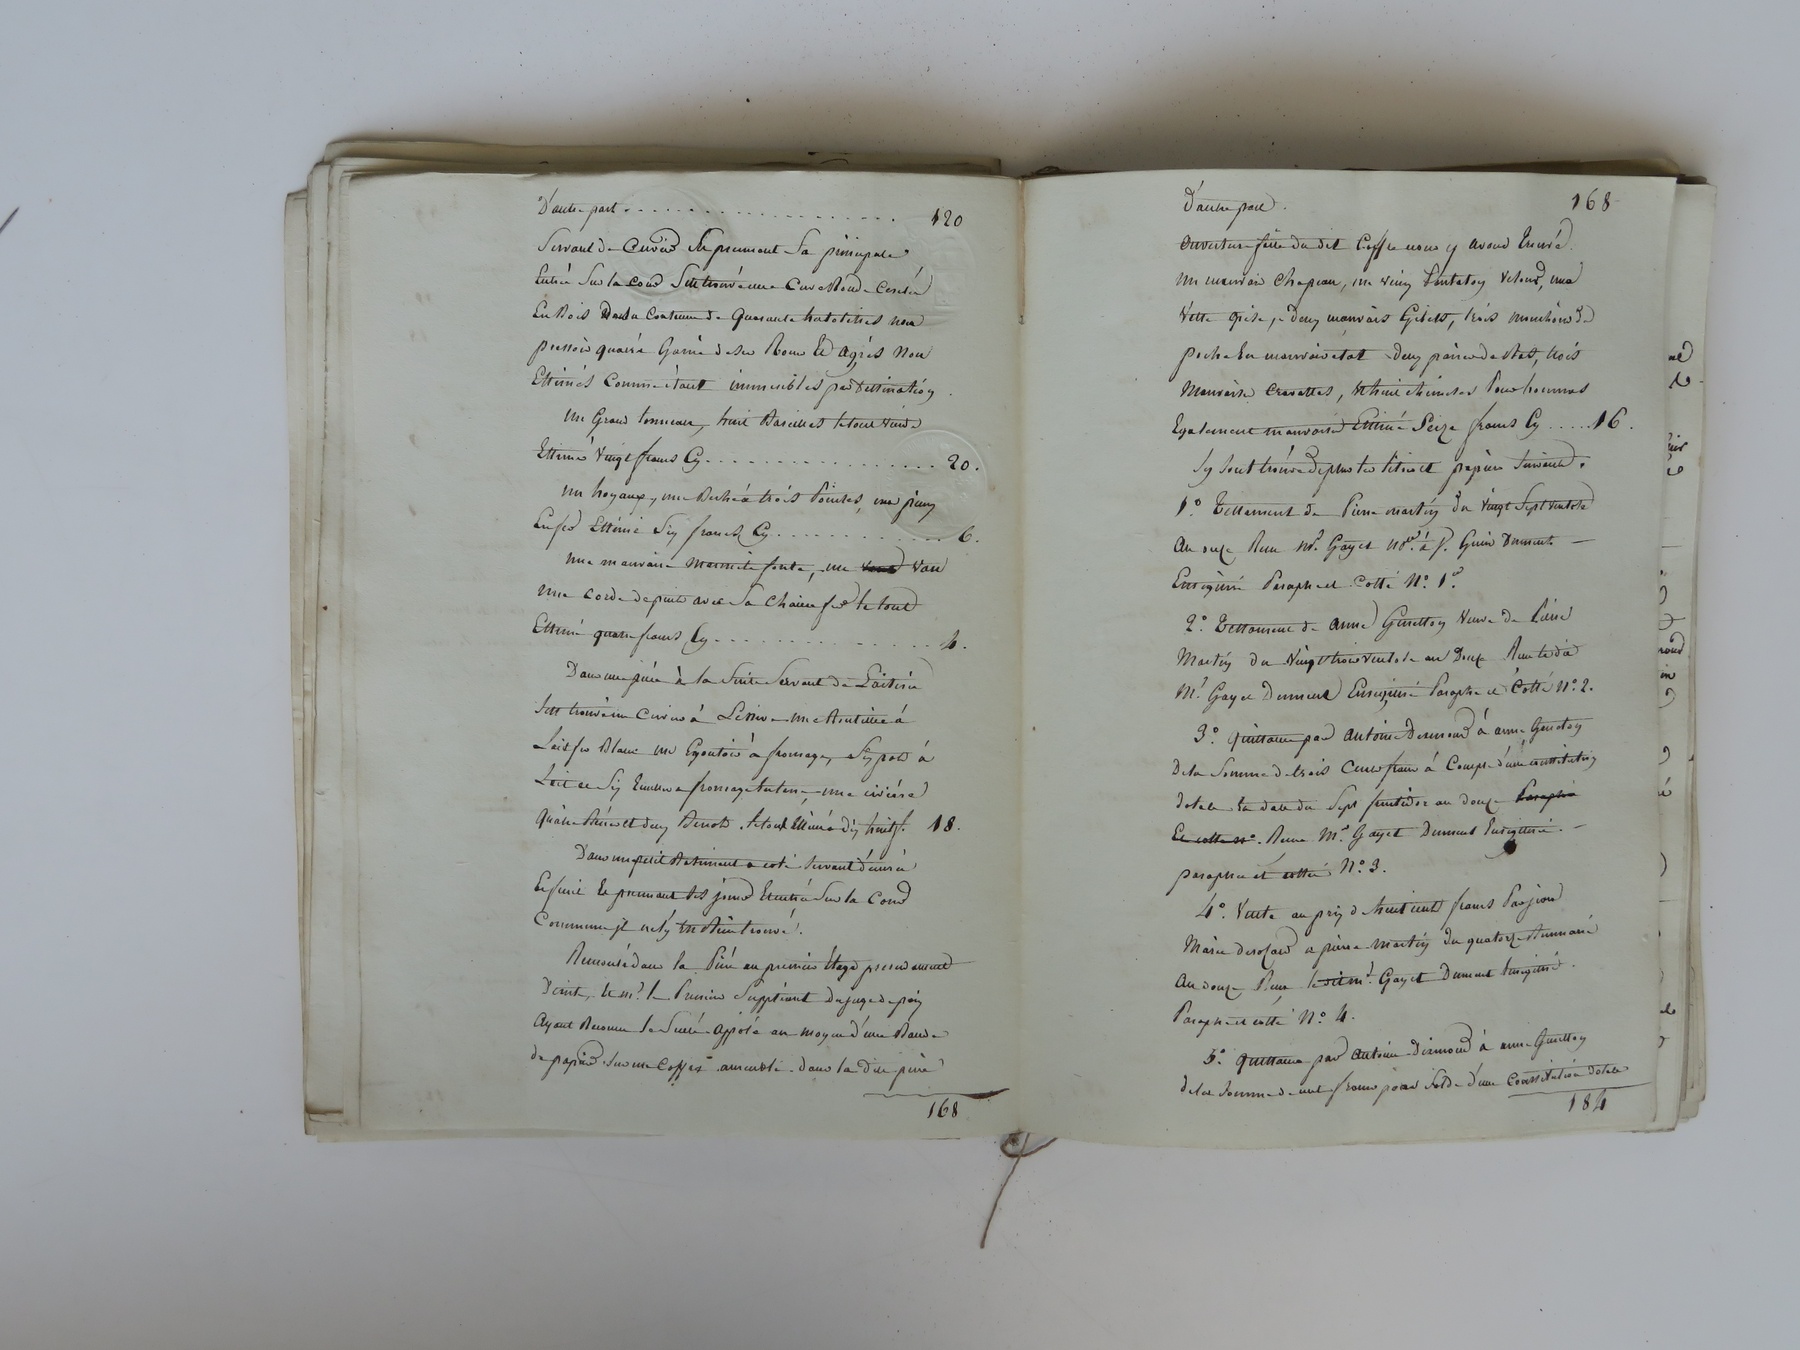 D'autre part . . . . . . . . . . . . . . . . . . . 120
Servant de Cuvier Et prennant Sa principale
Entrée Sur la Cour S'est trouvé une Cuve Ronde Cerclée
En Bois de la Contenue de Quarante hectolitres un
pressoir quarré Garni de ses Roue Et agrès Non
Estimés Comme étant immeubles par destination
un Grand tonneau, huit Bareilles le tout vuide
Estimé Vingt francs Cy . . . . . . . . . . . . . . . . . 20.
un hoyaux, une Beche à trois Pointes, une pieuy
En fer Estimé Six francs Cy . . . . . . . . . . . . 6.
une mauvaise Marmite fonte, un van
une Corde de puits avec Sa Chaine fer le tout
Estimé quatre francs Cy . . . . . . . . . . . . . . . 4.
Dans une pièce à la Suite Servant de Laiterie
S'est trouvé un Cuvier à Lessive une à
Lait fer Blanc un Egoutoir à fromage, Six pots à
Lait et Six à fromage , une civière
quatre et deux Bennots le tout Estimé dix huit f. 18.
Dans un petit Batiment a coté Servant d'écurie
Et fenil Et prennant Ses jours Et entrée Sur la Cour
Commune il ne s'y Est Rien trouvé.
Remonté dans la Pièce au premier Etage precedament
Decrite, Et Mr. le Premier Suppléant du juge de paix
Ayant Reconnu le Scellé apposé au moyen d'une Bande
de papier Sur un Coffre dans la Dite pièce
168
D'autre part. 168
Ouverture faite du dit Coffre nous y avons trouvé
un mauvais Chapeau, un vieux Pantalon velours, une
Veste grise, deux mauvais Gilets, trois mouchoirs de
poche En mauvais état deux paires de Bas, trois
Mauvaises Cravattes, Et huit chemises Pour hommes
Egalement mauvaises Estimé Seize francs Cy . . . . . 16.
S'y sont trouvés de plus les titres et papiers Suivants.
1o. Testament de Pierre Martin du Vingt Sept Ventose
An onze Reçu Mr. Gayet Nore. à St. Genis Dument —
Enregistré Paraphé et Cotté No. 1er
2o. Testament de Anne Guretton Veuve de Pierre
Martin du Vingt trois Ventose an Douze Reçu le dit
Mr. Gayet Dument Enregistré Paraphé et Cotté No. 2.
3o. quittance par Antoine à anne Guretton
De la Somme de trois Cent francs à Compte d'une Constitution
dotale En date du Sept fructidor an douze Paraphé
Et cotté no. Reçu Mr. Gayet Dument Enregistré. —
paraphé et cotté No. 3.
4o. Vente au prix de huit cent francs Par
Marie a pierre Martin du quatorze Brumaire
An douze Reçu le dit Mr. Gayet Dument Enregistré.
Paraphé et cotté No. 4.
5o. quittance par Antoine à anne Guretton
de la Somme de cent francs pour Solde d'une Constitution dotale
184